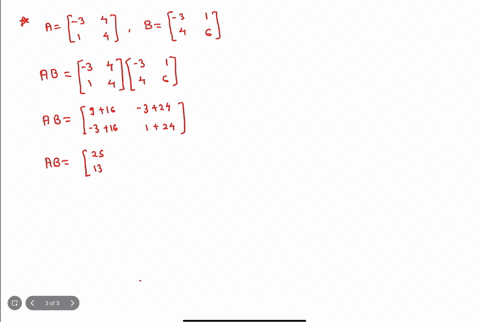 * A = [-3 4 1 4], B = [-3 1 4 6]
AB = [-3 4 1 4] [-3 1 4 6]
AB = [9+16 -3+24 -3+16 1+24]
AB = [25 13
3 of 3